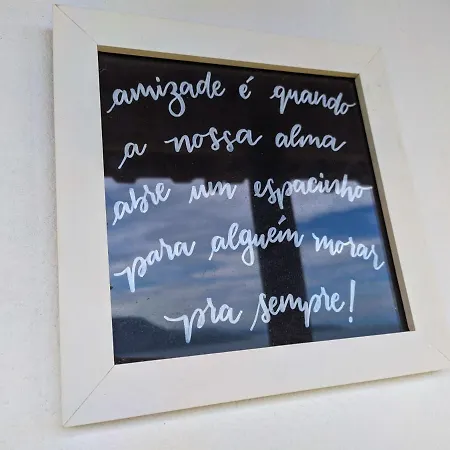 amizade é quando
a nossa alma
abre um espacinho
para alguém morar
pra sempre!